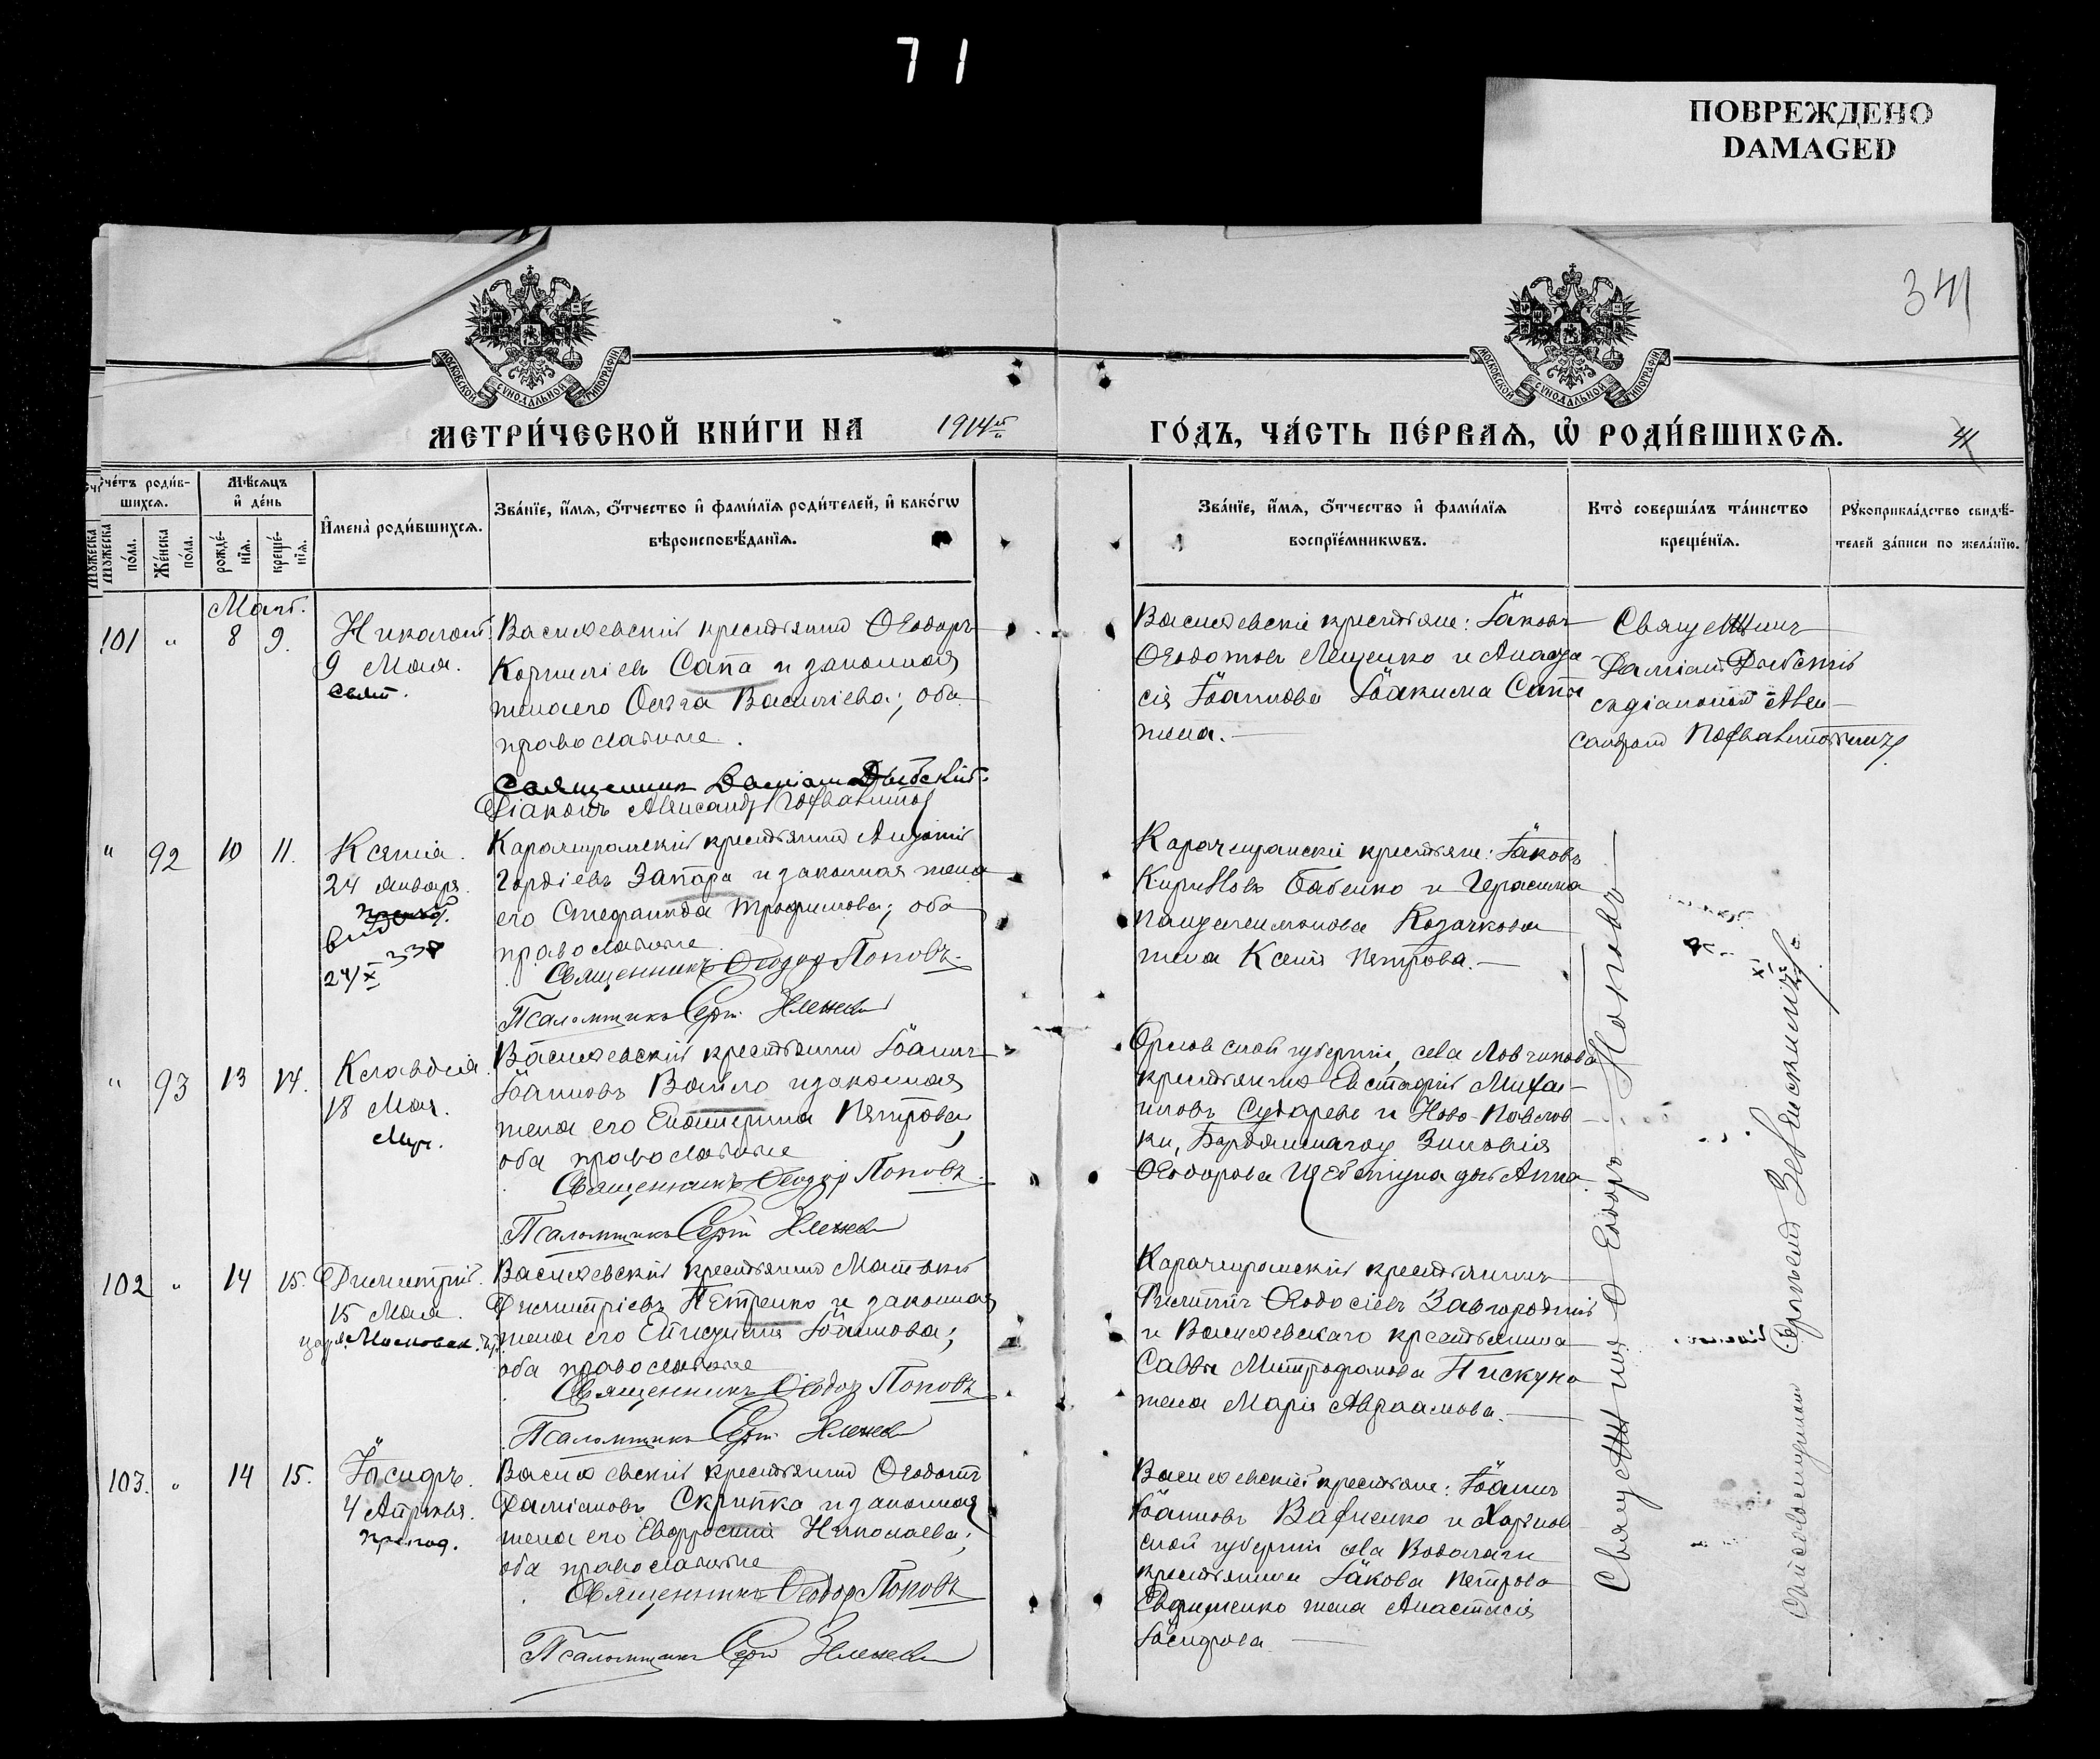 71
ПОВРЕЖДЕНО
DAMAGED
341
МОСКОВСКОЙ СУНОДАЛЬНОЙ ТИПОГРАФІИ
МОСКОВСКОЙ СУНОДАЛЬНОЙ ТИПОГРАФІИ
МЕТРИ́ЧЕСКОЙ КНИ́ГИ НА 1914 ГО́ДЪ, ЧА́СТЬ ПЕ́РВАЯ, Ѡ РОДИ́ВШИХСЯ.
Сче́тъ роди́в-
шихся.
Мꙋжеска
по́ла.
Же́нска
по́ла.
Мѣ́сяцъ
и҆ де́нь
рожде́-
нїя.
креще́-
нїя.
И҆мена̀ роди́вшихся.
Зва́нїе, и҆́мя, ѻ҆́тчество и҆ фами́лїя роди́телей, и҆ како́гѡ
вѣроисповѣ́данїя.
Зва́нїе, и҆́мя, ѻ҆́тчество и҆ фами́лїя
воспрїе́мникѡвъ.
Кто̀ соверша́лъ та́инство
креще́нїя.
Рꙋкоприкла́дство свидѣ́-
телей за́писи по жела́нїю.
101 " 8 9.
Николай
9 Мая.
Василевскій крестьянинъ Ѳеодоръ
Корниліевъ Сапа и законная
жена его Ольга Васильева; оба
православные.
Священникъ Даміанъ
Діаконъ Александръ
Василевскіе крестьяне: Іаковъ
Ѳедотовъ Лещенко и Анаста
сія Іоаннова Іоакима Сапы
жена.
Священникъ
Даміанъ
съ діакономъ Алек-
сандромъ
" 92 10 11.
Ксенія.
24 января.
24/X 338
крестьянинъ Антоній
Гордіевъ Запара и законная жена
его Стефанида Трофимова; оба
православные.
Священникъ Ѳеодоръ Поповъ.
Псаломщикъ
крестьяне: Іаковъ
Кирилловъ Бабенко и Герасима
Пантелеимонова Козачкова
жена Ксенія Петрова.
" 93 13 14.
Клавдія.
18 Мая.
Муч.
Василевскій крестьянинъ Іоаннъ
Іоанновъ Вайло и законная
жена его Екатерина Петрова;
оба православные
Священникъ Ѳеодоръ Поповъ.
Псаломщикъ
Орловской губерніи, села Ловчикова
крестьянинъ Евстафій Михаи-
ловъ Сударевъ и Ново-Павлов-
ки, Бердянскаго у Зиновія
Ѳеодорова дочь Анна.
102 " 14 15.
Димитрій.
15 Мая.
Василевскій крестьянинъ Матѳей
Димитріевъ Петренко и законная
жена его Іоаннова;
оба православные
Священникъ Ѳеодоръ Поповъ
Псаломщикъ
крестьянинъ
Филиппъ Ѳеодосіевъ Завгородній
и Василевскаго крестьянина
Саввы Митрофанова Пискуна
жена Марія Авраамова.
103. " 14 15.
Ісидоръ.
4 Апрѣля.
препод.
Василевскій крестьянинъ Ѳеодотъ
Даміановъ Скрипка и законная
жена его Евфросинія Николаева;
оба православные
Священникъ Ѳеодоръ Поповъ
Псаломщикъ
Василевскій крестьяне: Іоаннъ
Іоанновъ и Харьков
ской губерніи села Водолаги
крестьянина Іакова Петрова
Евфименко жена Анастасія
Ісидорова
Священникъ Ѳеодоръ Поповъ